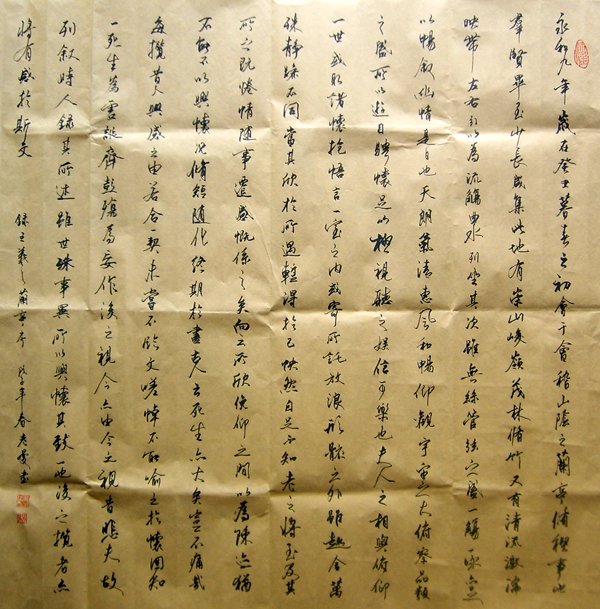 永和九年歲在癸丑暮春之初會于會稽山陰之蘭亭脩稧事也
羣賢畢至少長咸集此地有崇山峻嶺茂林脩竹又有清流激湍
映帶左右引以為流觴曲水列坐其次雖無絲管弦之盛一觴一詠亦足
以暢敘幽情是日也天朗氣清惠風和暢仰觀宇宙之大俯察品類
之盛所以遊目騁懷足以極視聽之娛信可樂也夫人之相與俯仰
一世或取諸懷抱悟言一室之內或寄所託放浪形骸之外雖趣舍萬
殊靜躁不同當其欣於所遇輕得於己怏然自足不知老之將至及其
所之既惓情隨事遷感慨係之矣向之所欣俛仰之間以為陳迹猶
不能不以興懷況脩短隨化終期於盡古人云死生亦大矣豈不痛哉
每攬昔人興感之由若合一契未嘗不臨文嗟悼不能喻之於懷固知
一死生為虛誕齊彭殤為妄作後之視今亦由今之視昔悲夫故
列敘時人錄其所述雖世殊事異所以興懷其致一也後之攬者亦
將有感於斯文 錄王羲之蘭亭序 戊子年春